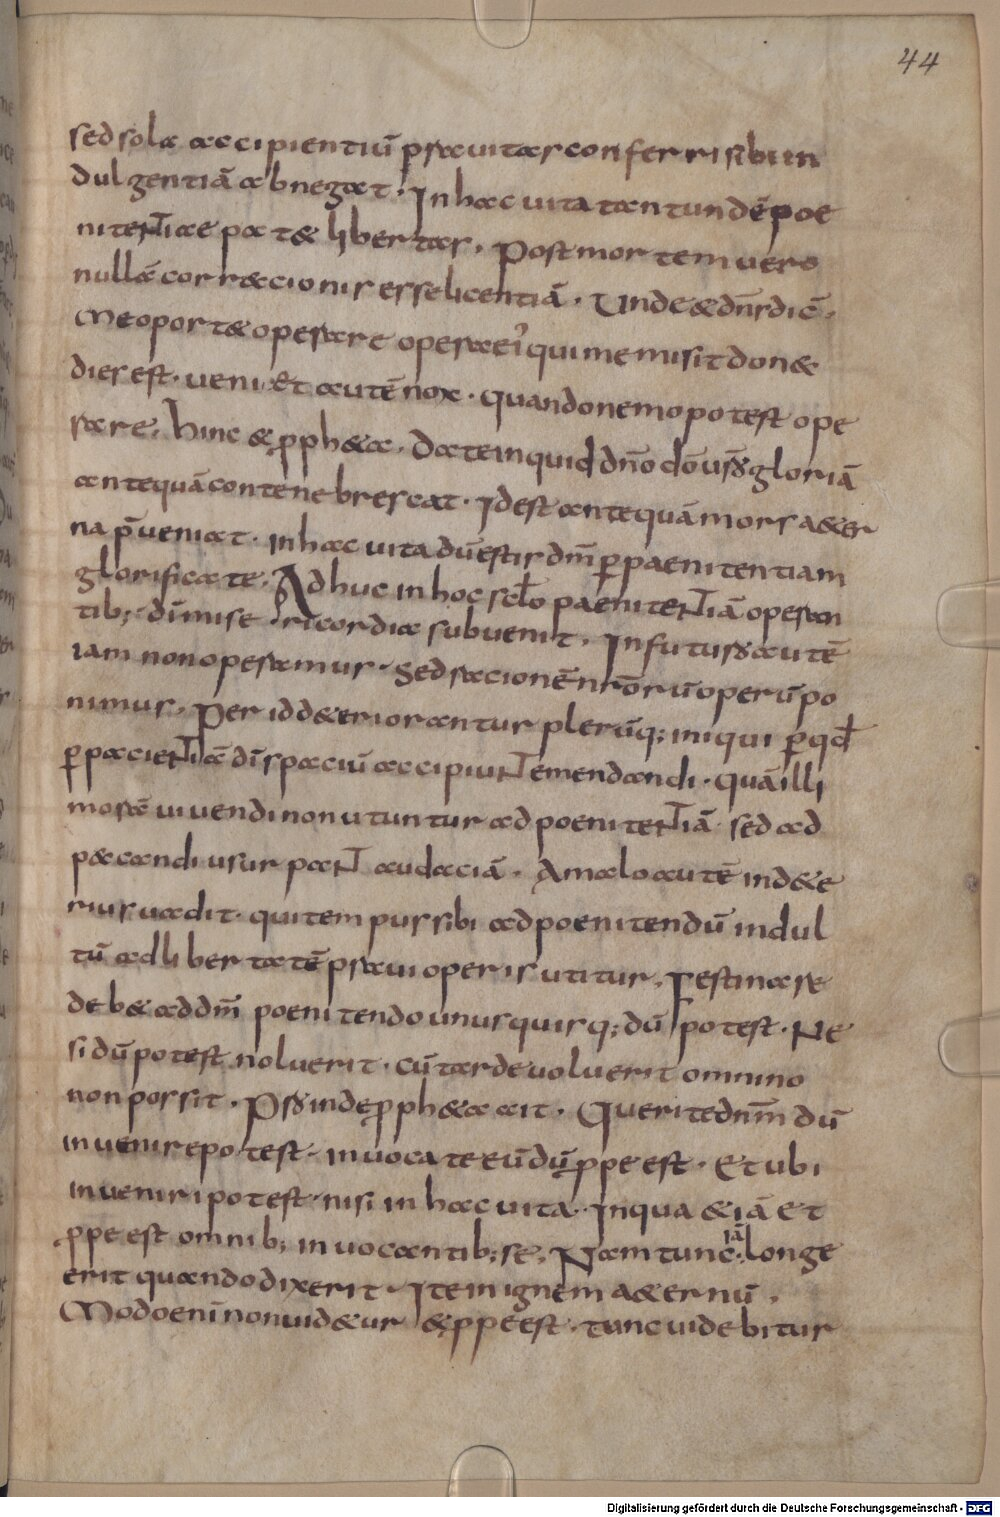 44
sed sola accipientiū prauitas conferri sibi in
dulgentiā abnegat. In hac uita tantundē poe
nitentiae pat& libertas. Post mortem uero
nullā corr&cionis esse licentiā. Unde & dn̄s dic̄.
Me oport& operare opera ei' qui me misit don&
dies est. ueni& autē nox. quando nemo potest ope
rare. hinc & ꝓph&a. Date inquid dn̄o dō ur̄o gloriā
antequā contenebrescat. Id est antequā mors a&er
na p̄ueniat. in hac uita dū estis dm̄ ꝑ paenitentiam
glorificate. Adhuc in hoc scl̄o paenitentiā operan
tib; dī miserecordia subuenit. In futuro autē
iam non operamur. sed racionē nr̄orū operū po
nimus. Per id d&eriorantur plerūq; iniqui ꝑ qđ
ꝑ pacientiā dī spaciū accipiunt emendandi. quā illi
morā uiuendi non utuntur ad poenitentiā sed ad
p&candi usurpant audaciā. A malo autē in d&e
rius uadit. qui tempus sibi ad poenitendū indul
tū ad libertatē praui operis utitur. Festinare
deb& ad dm̄ poenitendo unusquisq; dū potest. Ne
si dū potest noluerit. cū tarde uoluerit omnino
non possit. Proinde ꝓph&a ait. Querite dn̄m dū
inuenire potest. inuocate eū dū ꝓpe est. Et ubi
inueniri potest. nisi in hac uita. In qua &iā et
ꝓpe est omnib; inuocantib; se. Nam tunc iā longe
erit quando dixerit. Ite in ignem a&ernū.
Modo eni non uid&ur & ꝓpe est. tunc uidebitur
Digitalisierung gefördert durch die Deutsche Forschungsgemeinschaft - DFG